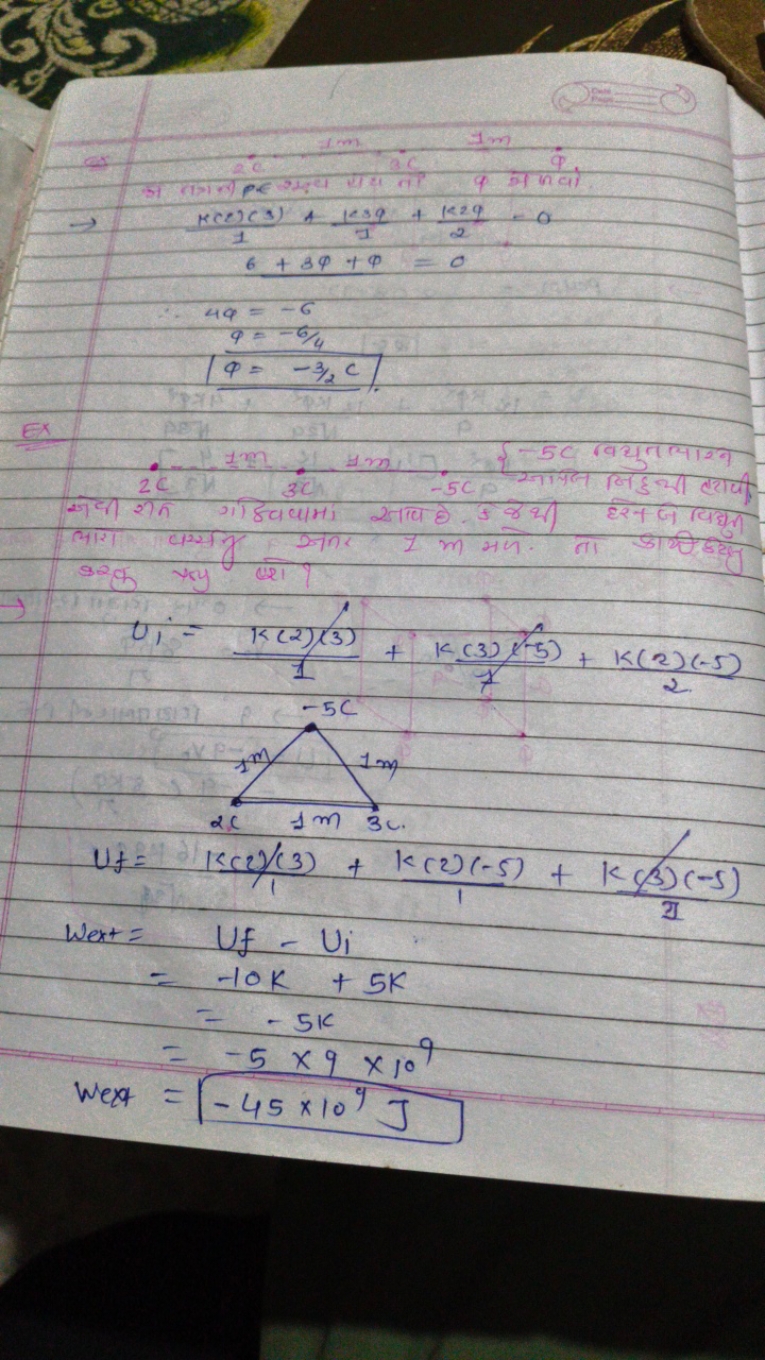 Date
Page
1m 1m
2C 3C Q
PE શૂન્ય હોય તો Q
→ K(2)(3)/1 + K3Q/1 + K2Q/2 = 0
6 + 3Q + Q = 0
∴ 4Q = -6
Q = -6/4
Q = -3/2 C
Ex
1m 1m { -5C વિદ્યુતભારને
2C 3C -5C
એવી રીતે ગોઠવવામાં આવે છે કે જેથી દરેક બે વિદ્યુત
ભાર વચ્ચેનું અંતર 1 m મળે. તો કાર્ય કેટલું
કરવું પડ્યું હશે ?
→ Ui = K(2)(3)/1 + K(3)(-5)/1 + K(2)(-5)/2
-5C
1m 1m
2C 1m 3C.
Uf = K(2)(3)/1 + K(2)(-5)/1 + K(3)(-5)/1
Wext = Uf - Ui
= -10K + 5K
= -5K
= -5 × 9 × 10⁹
Wext = -45 × 10⁹ J